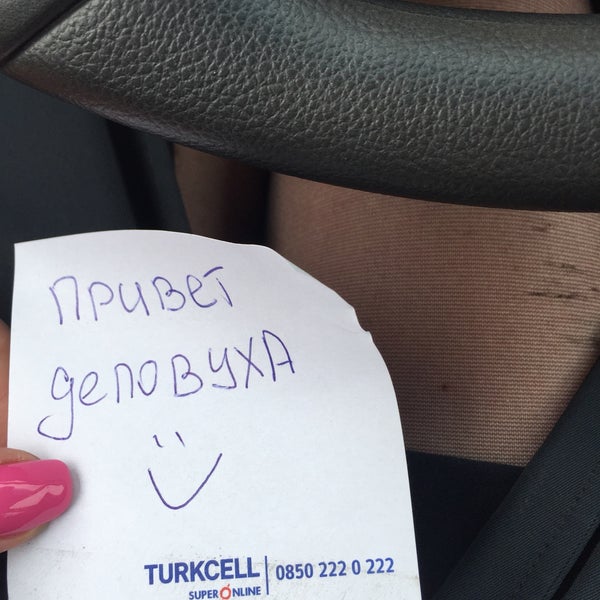 привет
деловуха
TURKCELL
SUPERONLINE
0850 222 0 222